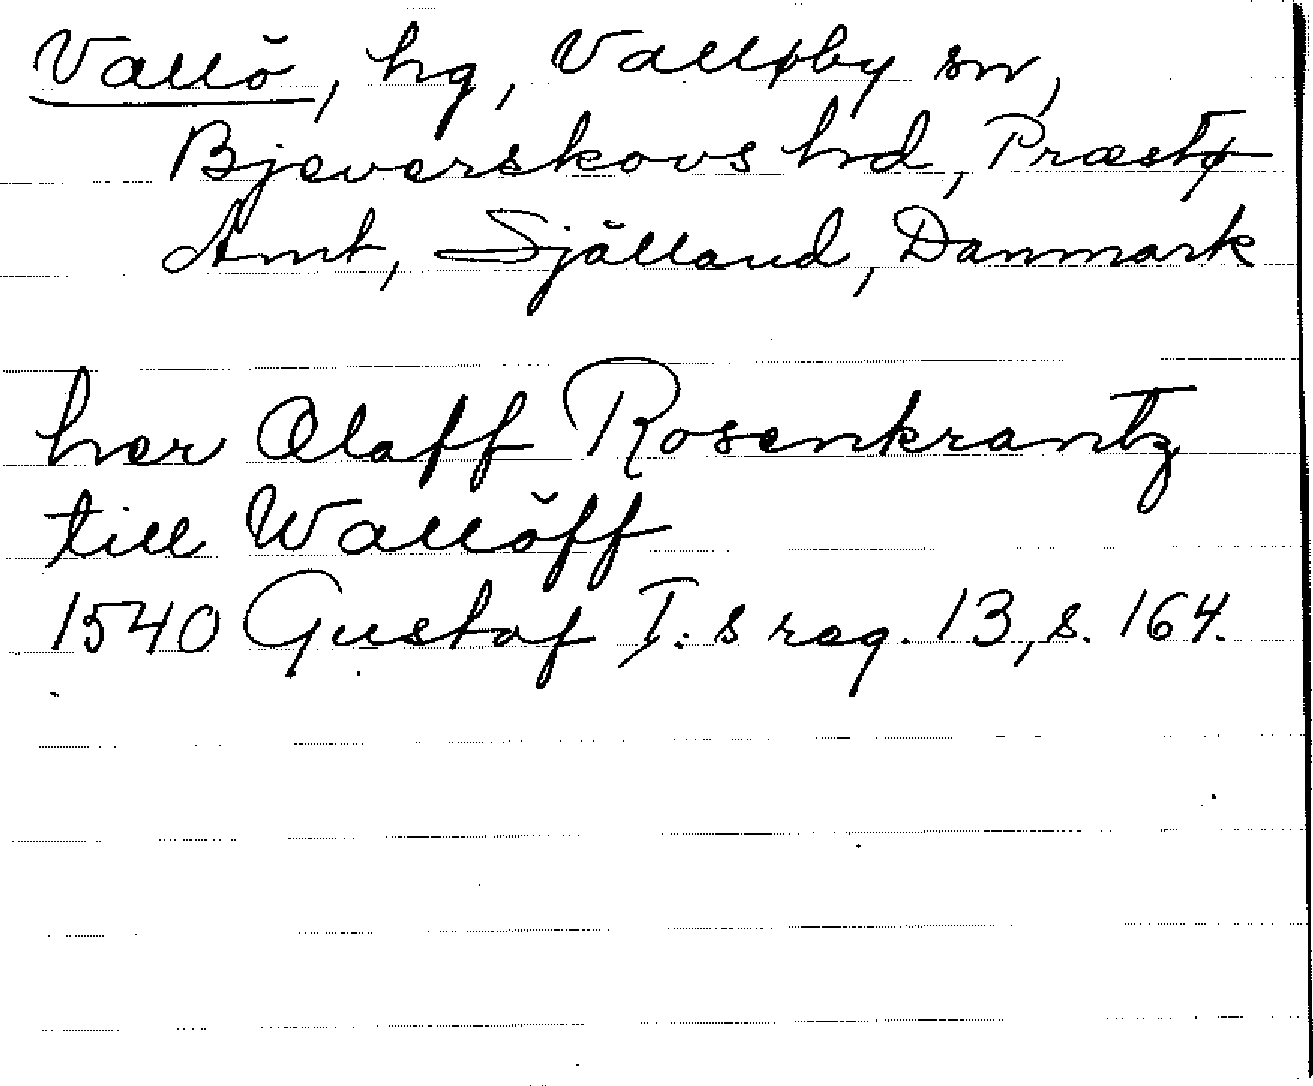 Vallö, hg, Valløby sn,
Bjeverskovs hrd, Præstø
Amt, Själland, Danmark
her Olaff Rosenkrantz
till Wallöff
1540 Gustaf I:s reg. 13, s. 164.